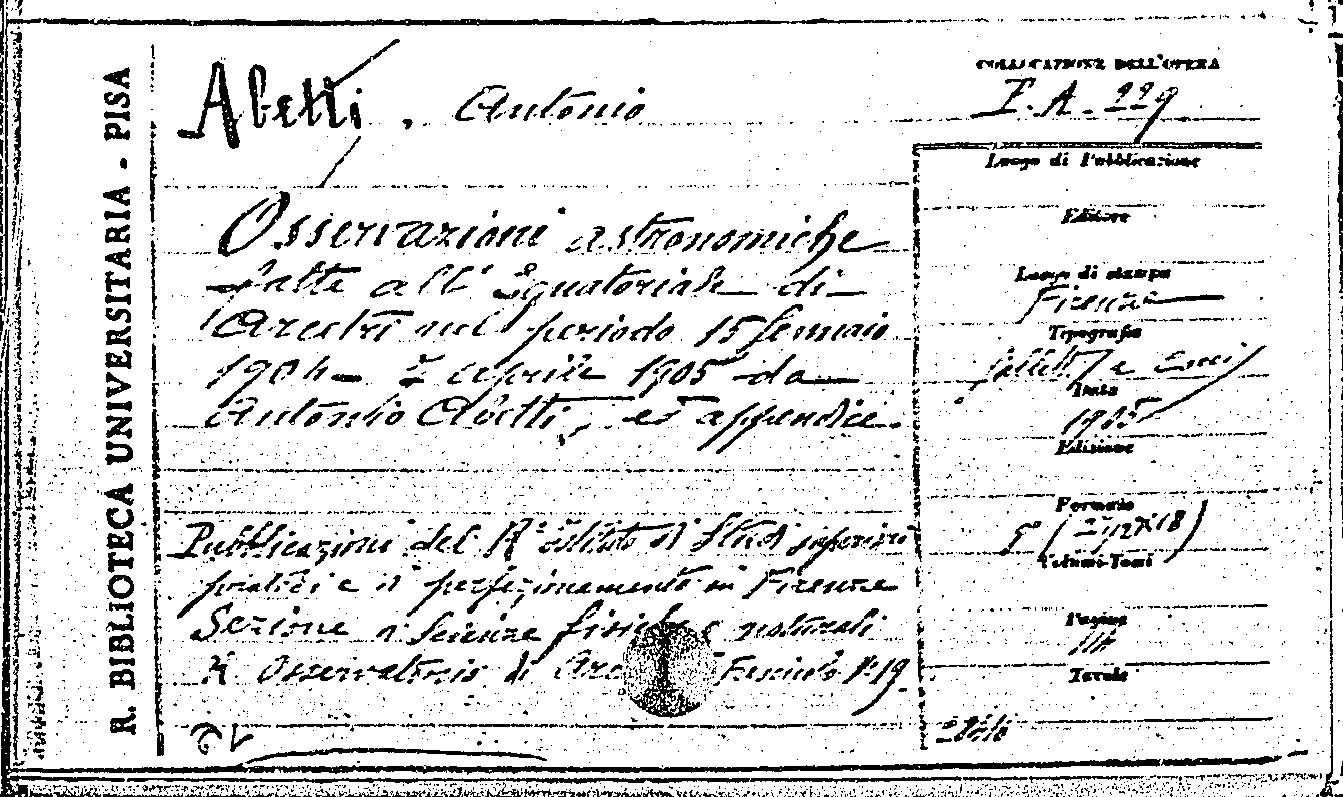 R. BIBLIOTECA UNIVERSITARIA - PISA
Abetti, Antonio
Osservazioni astronomiche
fatte all' Equatoriale di
Arcetri nel periodo 15 Gennaio
1904 - aprile 1905 da
Antonio Abetti, ed appendice.
Pubblicazioni del R. istituto di Studi superiori
pratici e di perfezionamento in Firenze
Sezione di Scienze fisiche e naturali
R. Osservatorio di Fascicolo N. 19.
COLLOCAZIONE DELL'OPERA
F. A. 229
Luogo di Pubblicazione
Editore
Luogo di stampa
Firenze
Tipografia
Data
1905
Edizione
Formato
Volumi-Tomi
Pagine
Tavole